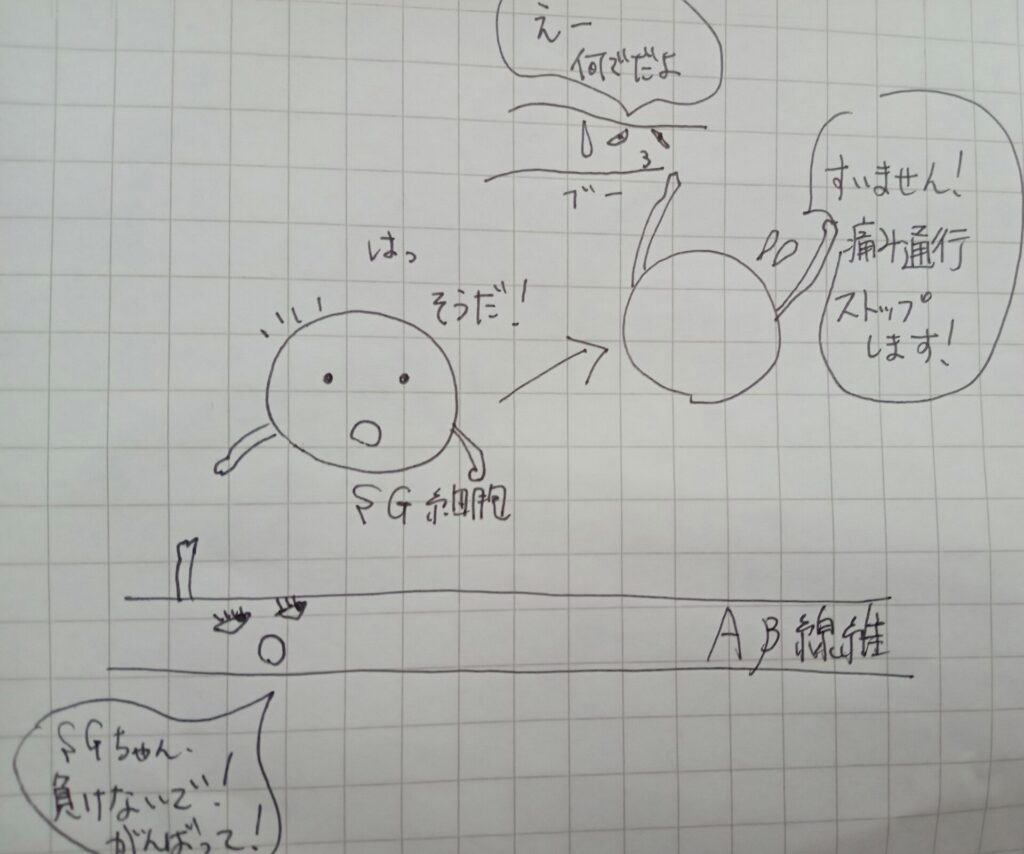 えー
何でだよ
ブー
すいません!
痛み通行
ストップ
します!
はっ
そうだ!
SG細胞
Aβ線維
SGちゃん、
負けないで!
がんばって!